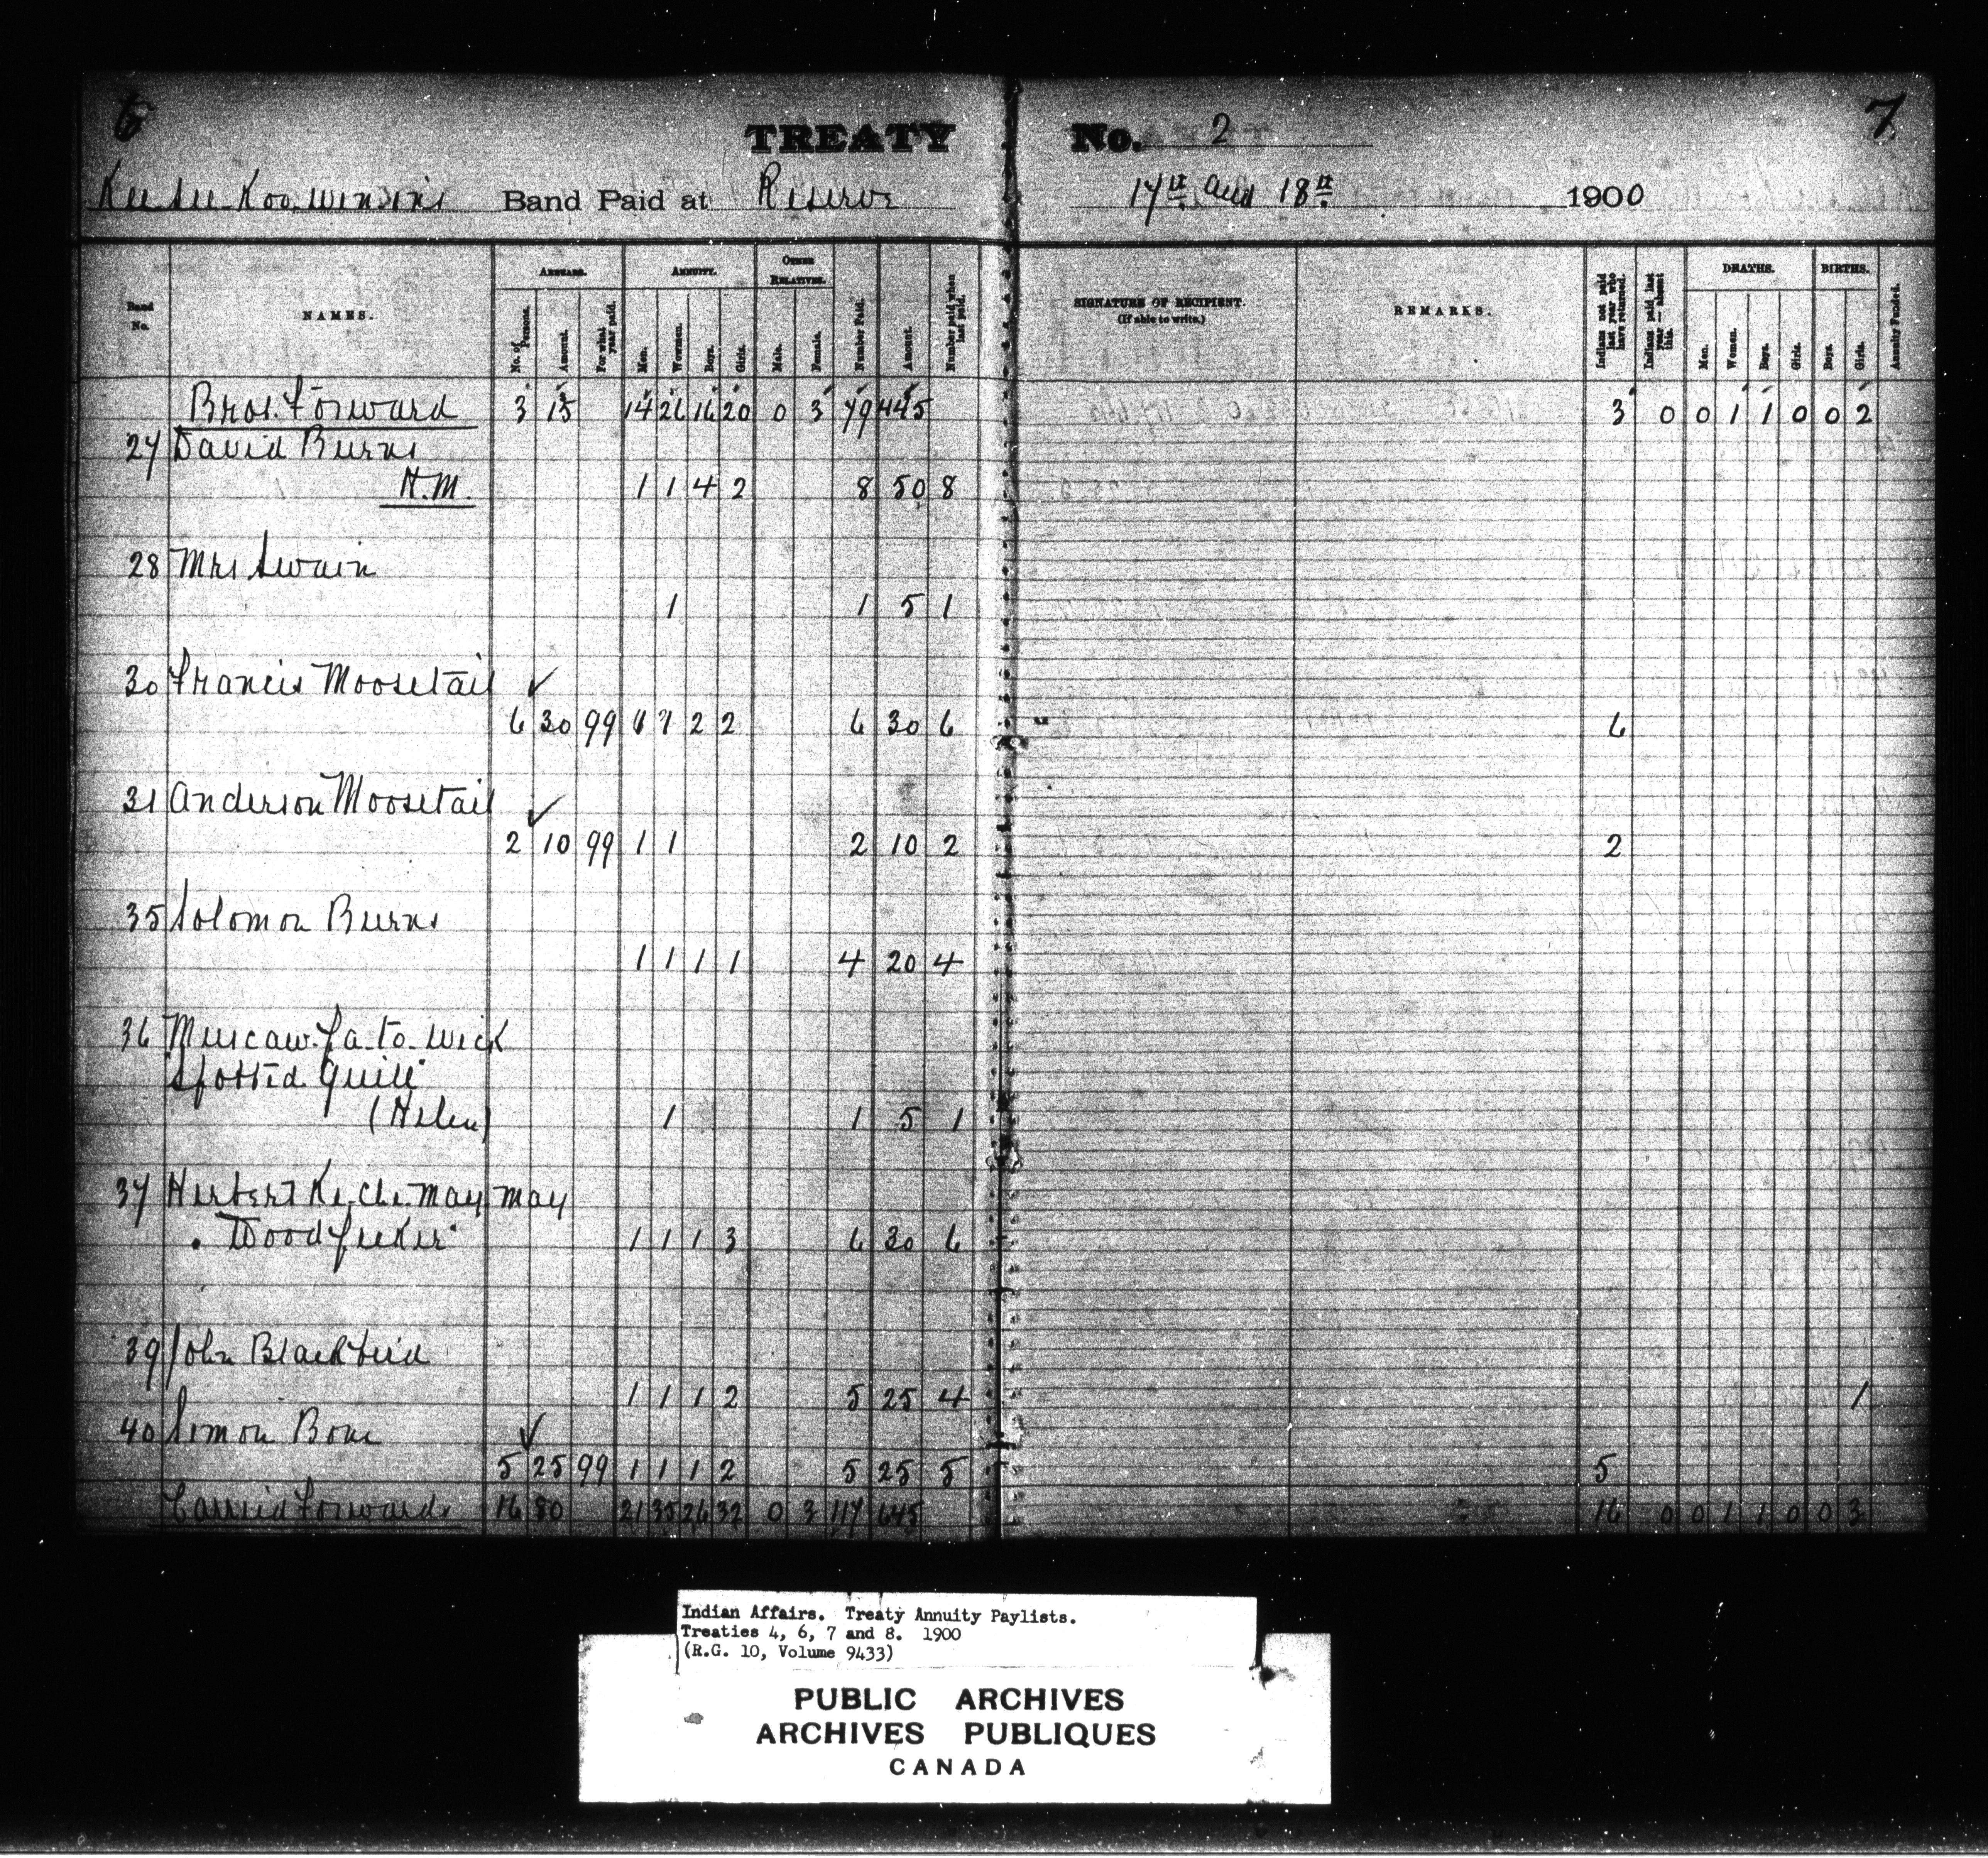 6
7
TREATY No. 2
Kee see Koo wenin's Band Paid at Reserve 17th and 18th 1900
Band No.
NAMES.
ARREARS.
No. of Persons.
Amount.
For what year paid.
ANNUITY.
Men.
Women.
Boys.
Girls.
OTHER RELATIVES.
Male.
Female.
Number Paid.
Amount.
Number paid when last paid.
SIGNATURE OF RECIPIENT.
(If able to write.)
REMARKS.
Indians not paid last year who have returned.
Indians paid last year — absent this.
DEATHS.
Men.
Women.
Boys.
Girls.
BIRTHS.
Boys.
Girls.
Annuity Funded.
Brot. Forward 3 15 14 26 16 20 0 3 79 445 3 0 0 1 1 0 0 2
27 David Burns
H.M. 1 1 4 2 8 50 8
28 Mrs Swain
1 1 5 1
30 Francis Moosetail ✓
6 30 99 1 1 2 2 6 30 6 6
31 Anderson Moosetail ✓
2 10 99 1 1 2 10 2 2
35 Solomon Burns
1 1 1 1 4 20 4
36 Muscaw-pa-to-wick
Spotted Quill
(Helen) 1 1 5 1
37 Herbert Ke-che-may may
"Woodpecker" 1 1 1 3 6 30 6
39 John Blackbird
1 1 1 2 5 25 4 1
40 Simon Bone ✓
5 25 99 1 1 1 2 5 25 5 5
Carried Forward 16 80 21 35 26 32 0 3 117 645 16 0 0 1 1 0 0 3
Indian Affairs. Treaty Annuity Paylists.
Treaties 4, 6, 7 and 8. 1900
(R.G. 10, Volume 9433)
PUBLIC ARCHIVES
ARCHIVES PUBLIQUES
CANADA